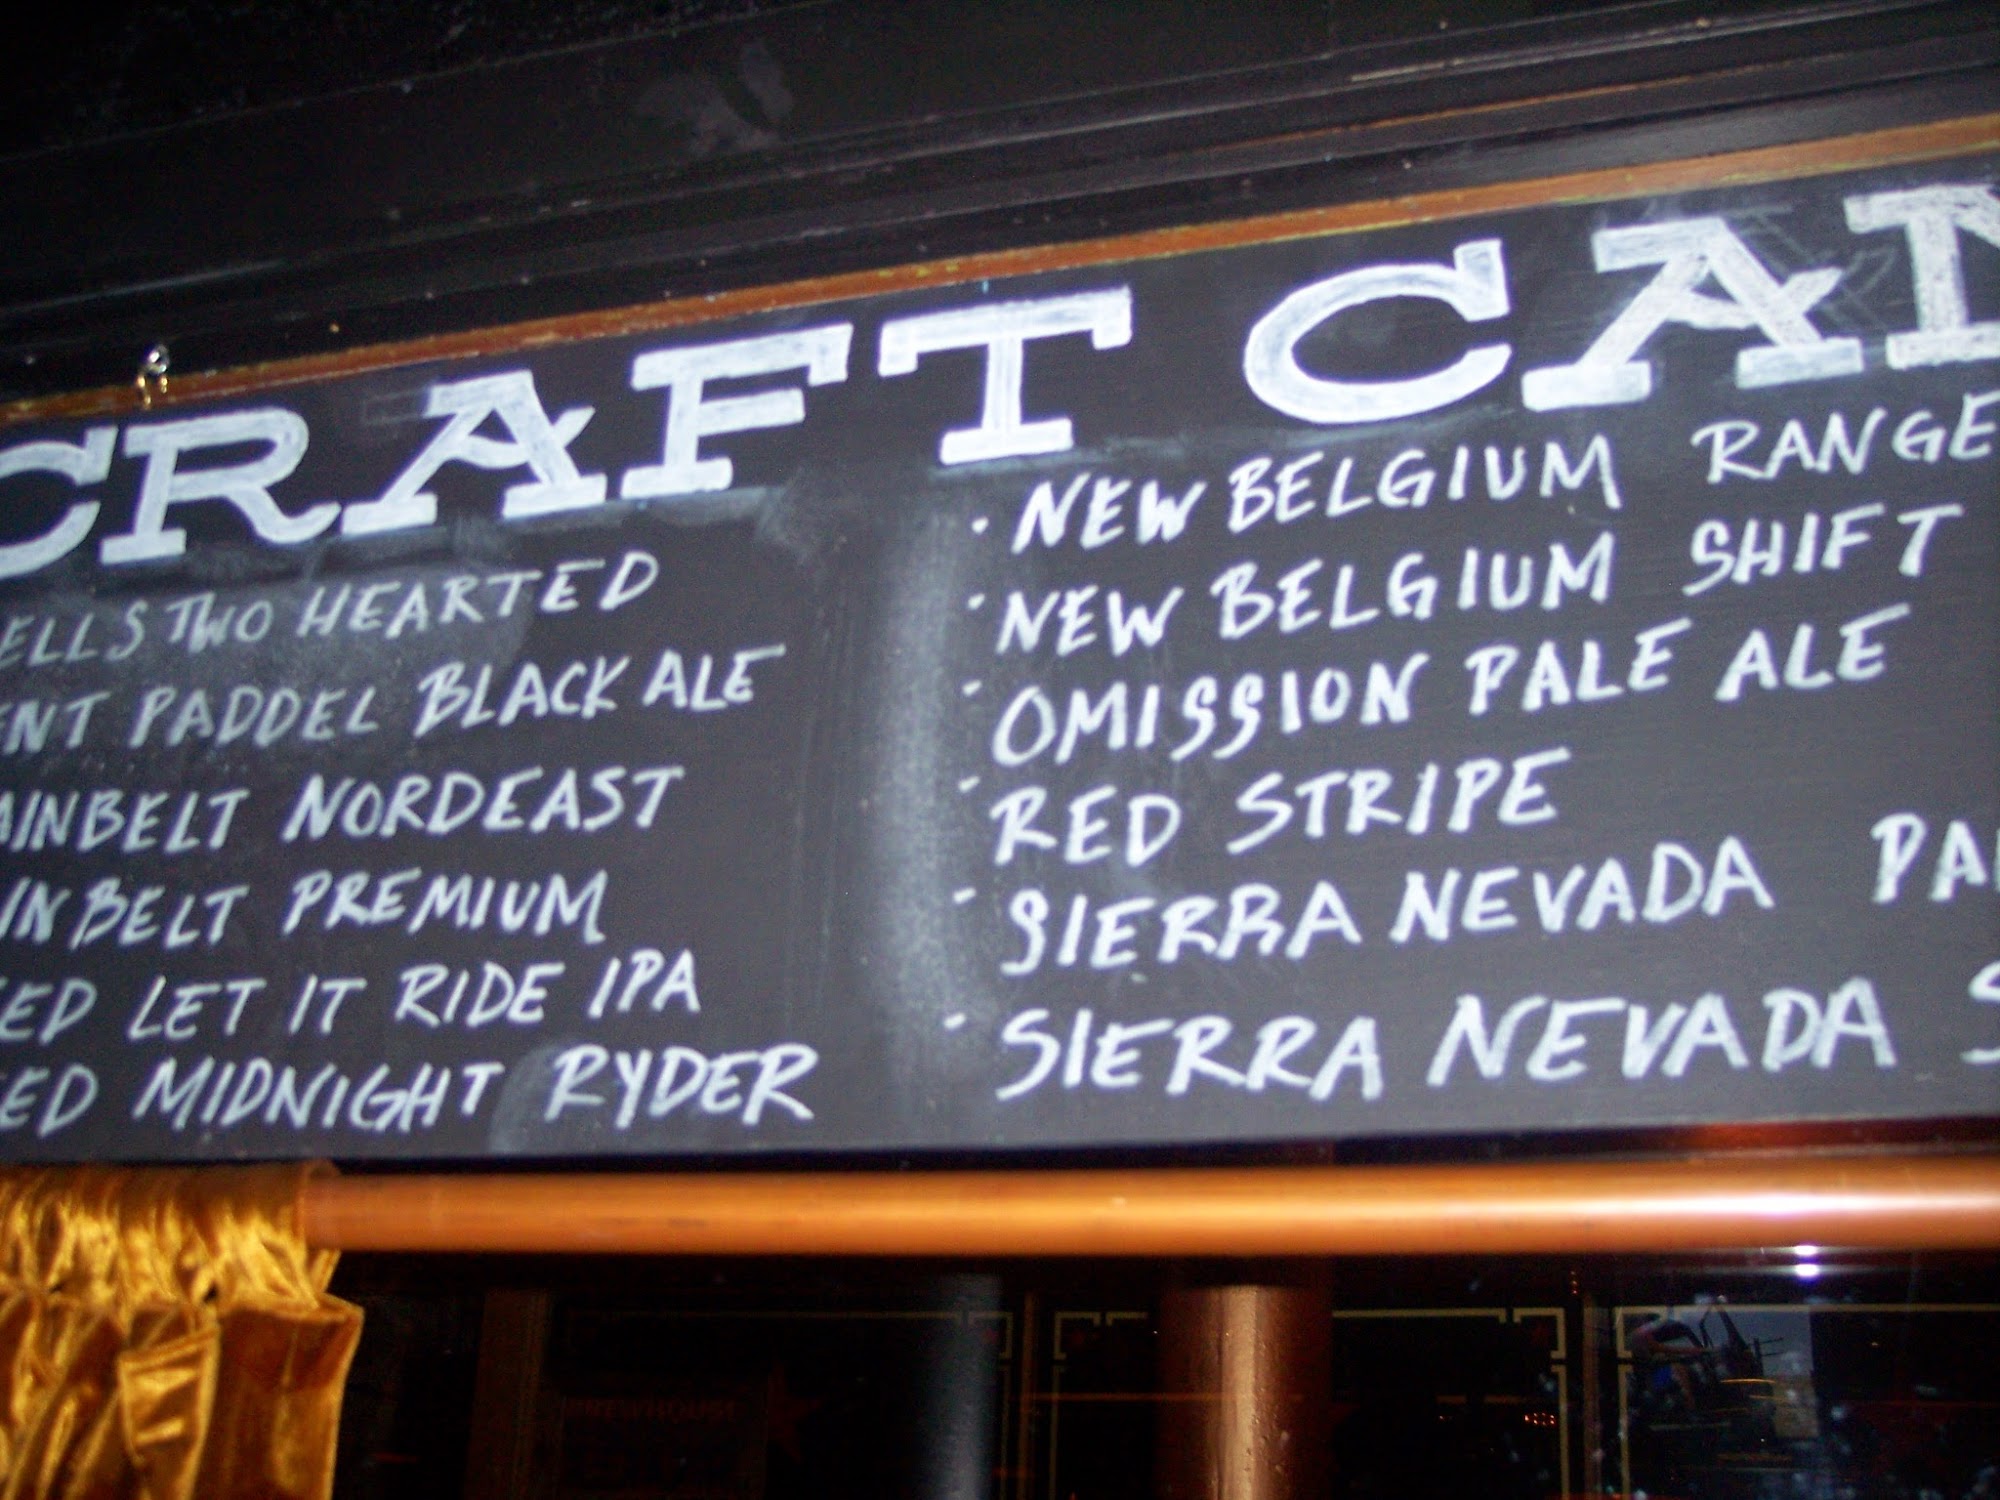 CRAFT CAN
ELLS TWO HEARTED
ENT PADDEL BLACK ALE
AINBELT NORDEAST
INBELT PREMIUM
EED LET IT RIDE IPA
EED MIDNIGHT RYDER
· NEW BELGIUM RANGE
· NEW BELGIUM SHIFT
· OMISSION PALE ALE
· RED STRIPE
· SIERRA NEVADA PAL
· SIERRA NEVADA S